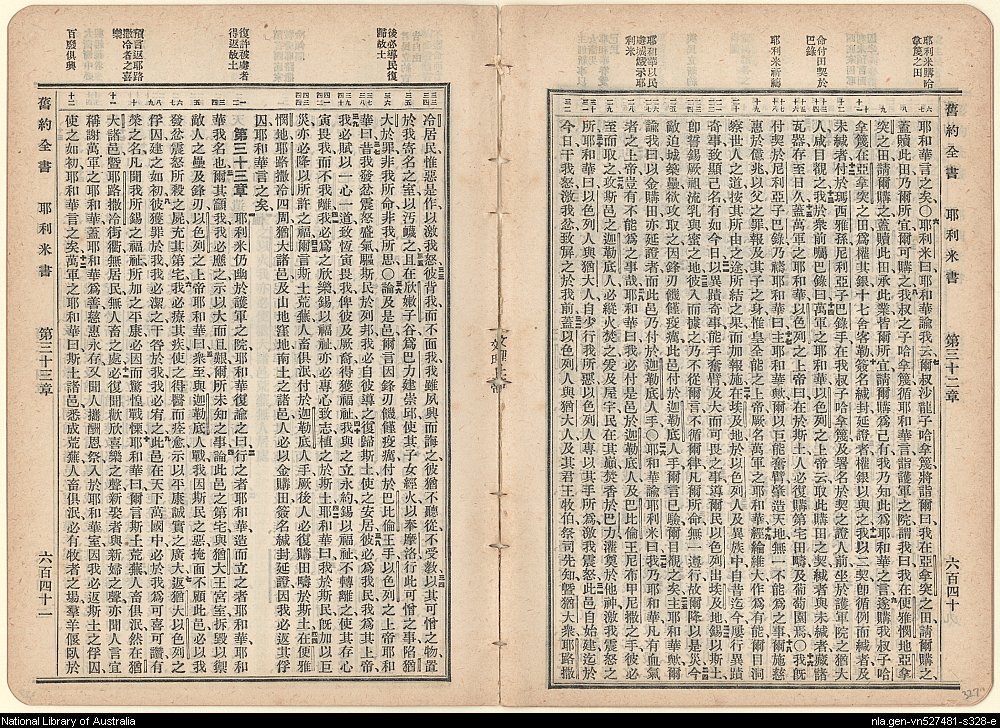 耶利米購哈
拿篾之田
命付田契於
巴錄
耶利米祈禱
耶和華以民
邊城燬示耶
利米
舊約全書 耶利米書 第三十二章 六百四十
耶和華言之矣〇耶利米曰耶和華諭我云爾叔沙龍子哈拿篾將詣爾曰我在亞拿突之田請爾購之
蓋贖此田乃爾所宜爾可購之我叔之子哈拿篾循耶和華言詣護軍之院謂我曰我在便雅憫地亞拿
突之田請爾購之蓋贖此田承此業皆爾所宜請爾購爲己有我乃知此爲耶和華之言遂購我叔子哈
拿篾在亞拿突之田爲權其銀十七舍客勒簽名緘封延證者權銀以與之我以一契即循例而緘者及
未緘者付於瑪西雅孫尼利亞子巴錄手在我叔子哈拿篾及署名於契之證人前坐於護軍院之猶大
人咸目覩之我於衆前屬巴錄曰萬軍之耶和華以色列之上帝云取此購田之契緘者與未緘者藏諸
瓦器存至日久蓋萬軍之耶和華以色列之上帝曰在於斯土人必復購第宅田疇及葡萄園焉〇我旣
付契於尼利亞子巴錄乃禱耶和華曰主耶和華歟爾以巨能奮臂肇造天地無一不能爲之事爾施慈
惠於億兆以父之罪報及其子之身惟皇全能之上帝厥名萬軍之耶和華經綸維大作爲有能爾目洞
察世人之道按其所由之途所結之果而加報施在埃及地於以色列人及異族中自昔迄今屢行異蹟
奇事致顯己名有如今日以異蹟奇事能手奮臂及大而可畏之事導爾民以色列出埃及地錫以斯土
即誓錫厥祖流乳與蜜之地彼入而據之乃不從爾言不循爾律凡爾所命無一遵行故爾降以是災
敵迫城築壘欲攻取之因鋒刃饑饉疫癘此邑付於迦勒底人手爾言已驗爾目覩之矣主耶和華歟爾
諭我曰以金購田亦延證者而此邑乃付於迦勒底人手〇耶和華諭耶利米曰我乃耶和華凡有血氣
者之上帝豈有不能爲之事哉耶和華曰我必付是邑於迦勒底人及巴比倫王尼布甲尼撒之手彼必
至而取之攻斯邑之迦勒底人必縱火焚之爰及屋宇民在其巓焚香於巴力灌奠於他神激我震怒之
所耶和華曰以色列人與猶大人自少行我所惡以色列人專以其手所爲激我震怒此邑自始建迄於
今日干我怒激我忿致屏之於我前蓋以色列人與猶大人及其君王牧伯祭司先知曁猶大衆耶路撒
後必導民復
歸故土
復許被虜者
得返故土
預言返耶路
撒冷者之喜
樂
百廢俱興
冷居民惟惡是作以激我怒彼背我而不面我雖夙興而誨之彼猶不聽從不受教以其可憎之物置
於我寄名之室以汚衊之且在欣嫩子谷爲巴力建崇邱使其子女經火以奉摩洛行此可憎之事陷猶
大於罪非我所命非我所思〇論及是邑爾言因鋒刃饑饉疫癘付於巴比倫王手以色列之上帝耶和
華曰昔我發忿震怒盛氣驅斯民於列邦我必自彼導之復歸斯土使之安居彼必爲我民我爲其上帝
我必賦以一心一道致恆寅畏我俾彼及厥裔得獲福祉我與之立永約錫以福祉不轉離之使其存心
寅畏我而不我離我必爲之欣樂錫以福祉亦必專心致志植之於斯土耶和華曰我於斯民旣加以巨
災亦必降以所許之福爾言斯土荒蕪人畜俱泯付於迦勒底人手厥後人必復購田疇於斯土在便雅
憫地耶路撒冷四周猶大諸邑及山地窪地南土之諸邑人必以金購田簽名緘封延證因我必返其俘
囚耶和華言之矣
第三十三章 耶利米仍幽於護軍之院耶和華復諭之曰行之者耶和華造而立之者耶和華耶和
華我名也爾其籲我我必應之示以大而且艱爾所未知之事論此邑之第宅與猶大王宮室拆毀以禦
敵人之壘及鋒刃以色列之上帝耶和華曰衆至與迦勒底人戰我因斯民之惡掩面不顧此邑必以我
發忿震怒所殺之屍充其第宅我必療其疾使之得醫而痊愈示以平康誠實之廣大返猶大以色列之
俘囚建之如初彼獲罪於我我必潔之干咎於我我必宥之此邑在天下萬國中必於我爲可喜可讚有
榮之名凡聞我所錫之福祉所加之平康必因之而驚惶戰慄耶和華曰爾言斯土荒蕪人畜俱泯然在猶
大諸邑曁耶路撒冷街衢無居民無人畜之處必復聞歡欣喜樂之聲新娶者與新婦之聲亦聞人言宜
稱謝萬軍之耶和華蓋耶和華爲善慈惠永存又聞人攜酬恩祭入於耶和華室因我必返斯土之俘囚
使之如初耶和華言之矣萬軍之耶和華曰斯土諸邑悉成荒蕪人畜俱泯必有牧者之場羣羊偃臥於
舊約全書 耶利米書 第三十三章 六百四十一
National Library of Australia
nla.gen-vn527481-s328-e